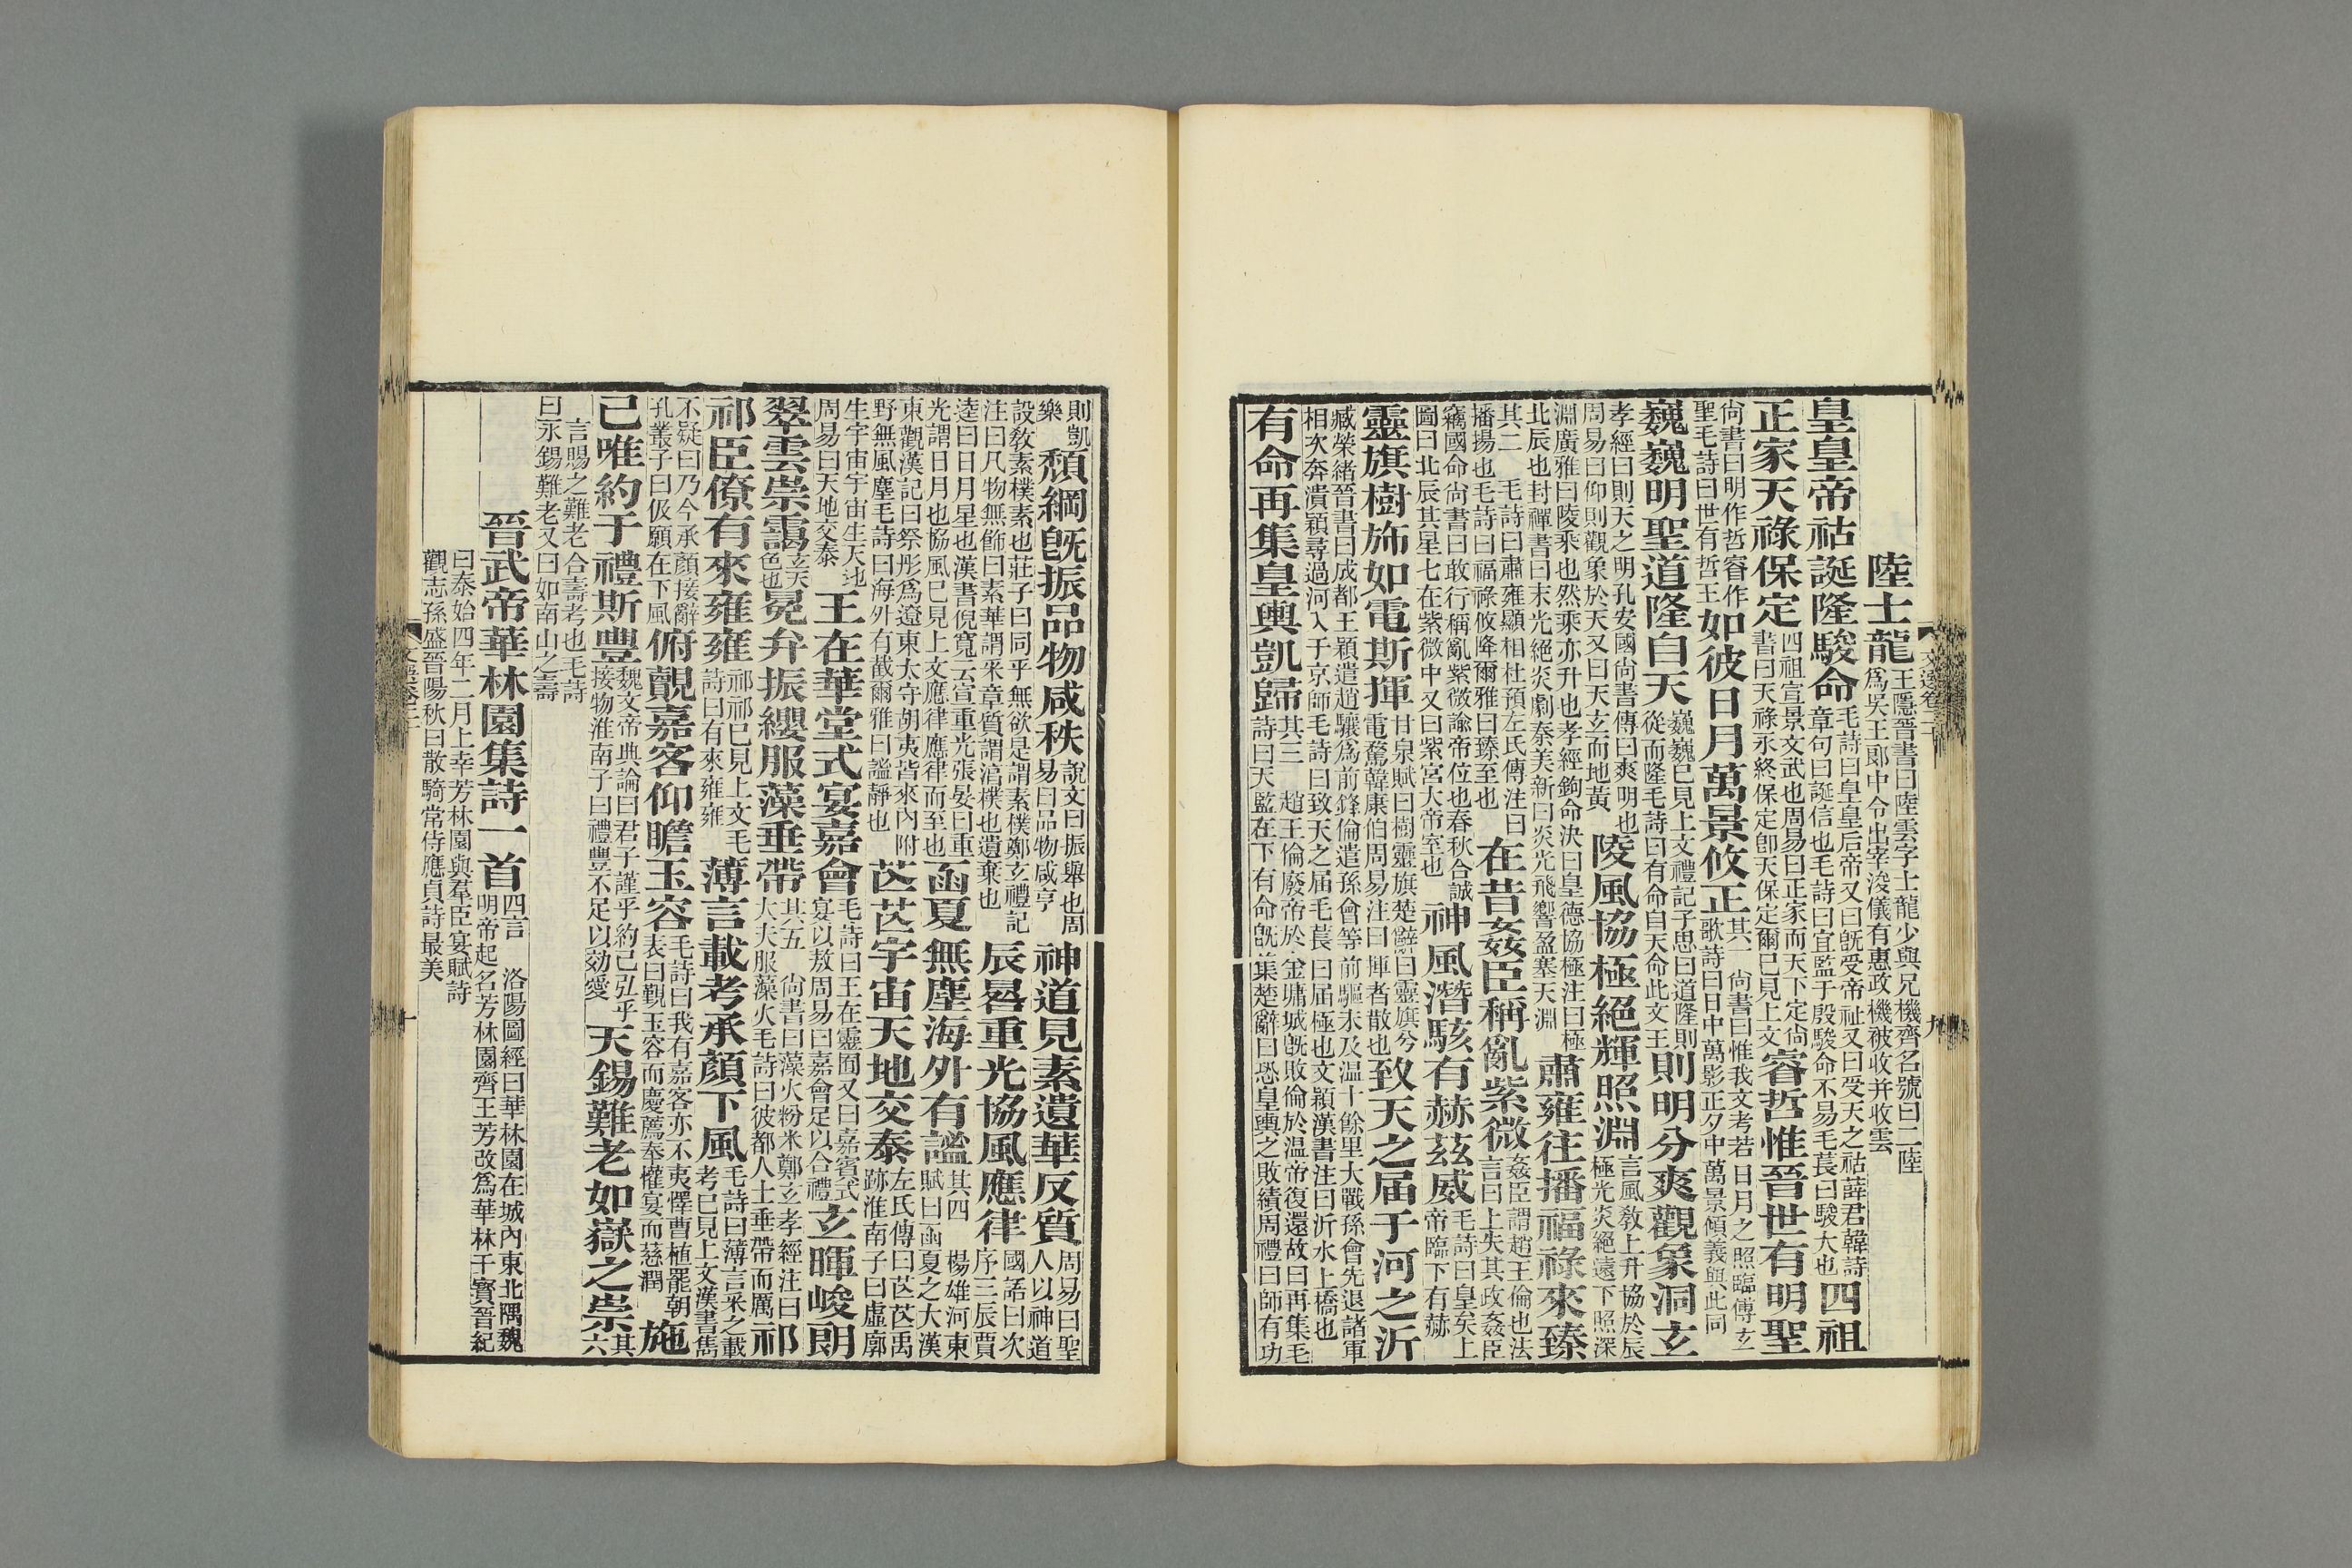 陸士龍王隱晉書曰陸雲字士龍少與兄機齊名號曰二陸爲吳王郎中令出宰浚儀有惠政機被收并收雲
皇皇帝祜誕隆駿命毛詩曰皇皇后帝又曰旣受帝祉又曰受天之祜薛君韓詩章句曰誕信也毛詩曰宜監于殷駿命不易毛萇曰駿大也四祖
正家天祿保定四祖宣景文武也周易曰正家而天下定尚書曰天祿永終保定卽天保定爾已見上文睿哲惟晉世有明聖
尚書曰明作哲睿作聖毛詩曰世有哲王如彼日月萬景攸正其一 尚書曰惟我文考若日月之照臨傅玄歌詩曰日中萬影正夕中萬景傾義與此同
巍巍明聖道隆自天巍巍已見上文禮記子思曰道隆則從而隆毛詩曰有命自天命此文王則明分爽觀象洞玄
孝經曰則天之明孔安國尚書傳曰爽明也周易曰仰則觀象於天又曰天玄而地黃陵風協極絕輝照淵言風敎上升協於辰極光炎絕遠下照深
淵廣雅曰陵乘也然乘亦升也孝經鉤命決曰皇德協極注曰極北辰也封禪書曰末光絕炎劇秦美新曰炎光飛響盈塞天淵肅雍往播福祿來臻
其二 毛詩曰肅雍顯相杜預左氏傳注曰播揚也毛詩曰福祿攸降爾雅曰臻至也在昔姦臣稱亂紫微姦臣謂趙王倫也法言曰上失其政姦臣
竊國命尚書曰敢行稱亂紫微諭帝位也春秋合誠圖曰北辰其星七在紫微中又曰紫宮大帝室也神風潛駭有赫茲威毛詩曰皇矣上帝臨下有赫
靈旗樹斾如電斯揮甘泉賦曰樹靈旗楚辭曰靈旗兮電騖韓康伯周易注曰揮者散也致天之届于河之沂
臧榮緒晉書曰成都王穎遣趙驤爲前鋒倫遣孫會等前驅未及温十餘里大戰孫會先退諸軍相次奔潰穎尋過河入于京師毛詩曰致天之届毛萇曰届極也文穎漢書注曰沂水上橋也
有命再集皇輿凱歸其三 趙王倫廢帝於金墉城旣敗倫於温帝復還故曰再集毛詩曰天監在下有命旣集楚辭曰恐皇輿之敗績周禮曰師有功
則凱樂頹綱旣振品物咸秩說文曰振舉也周易曰品物咸亨神道見素遺華反質周易曰聖人以神道
設敎素樸素也莊子曰同乎無欲是謂素樸鄭玄禮記注曰凡物無飾曰素華謂采章質謂淳樸也遺棄也辰晷重光協風應律國語曰次序三辰賈
逵曰日月星也漢書倪寬云宣重光張晏曰重光謂日月也協風已見上文應律應律而至也函夏無塵海外有謐其四 楊雄河東賦曰函夏之大漢
東觀漢記曰祭肜爲遼東太守胡夷皆來內附野無風塵毛詩曰海外有截爾雅曰謐靜也芒芒宇宙天地交泰左氏傳曰芒芒禹跡淮南子曰虛廓
生宇宙宇宙生天地周易曰天地交泰王在華堂式宴嘉會毛詩曰王在靈囿又曰嘉賓式宴以敖周易曰嘉會足以合禮玄暉峻朗
翠雲崇靄玄天色也冕弁振纓服藻垂帶其五 尚書曰藻火粉米鄭玄孝經注曰大夫服藻火毛詩曰彼都人士垂帶而厲祁
祁臣僚有來雍雍祁祁已見上文毛詩曰有來雍雍薄言載考承顏下風毛詩曰薄言采之載考已見上文漢書雋
不疑曰乃今承顏接辭孔叢子曰伋願在下風俯覿嘉客仰瞻玉容毛詩曰我有嘉客亦不夷懌曹植罷朝表曰覲玉容而慶薦奉懽宴而慈潤施
己唯約于禮斯豐魏文帝典論曰君子謹乎約己弘乎接物淮南子曰禮豐不足以効愛天錫難老如嶽之崇其六
言賜之難老合壽考也毛詩曰永錫難老又曰如南山之壽
晉武帝華林園集詩一首四言 洛陽圖經曰華林園在城內東北隅魏明帝起名芳林園齊王芳改爲華林干寶晉紀
曰泰始四年二月上幸芳林園與羣臣宴賦詩觀志孫盛晉陽秋曰散騎常侍應貞詩最美